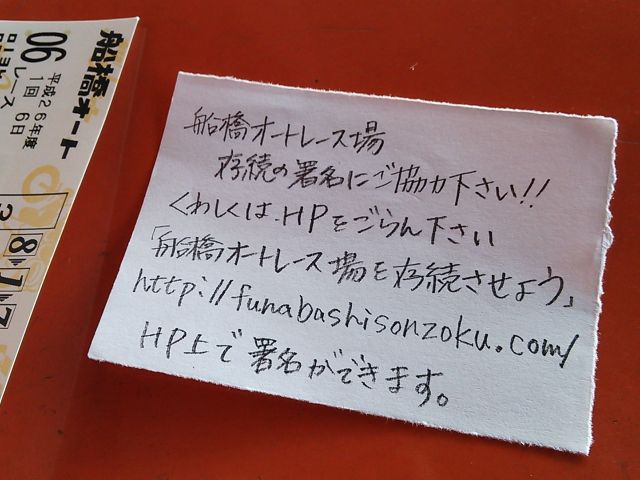 船橋オート
06レース
平成26年度
1回 6日
3
8 1 7
船橋オートレース場
存続の署名にご協力下さい!!
くわしくは、HPをごらん下さい
「船橋オートレース場を存続させよう」
http://funabashisonzoku.com/
HP上で署名ができます。